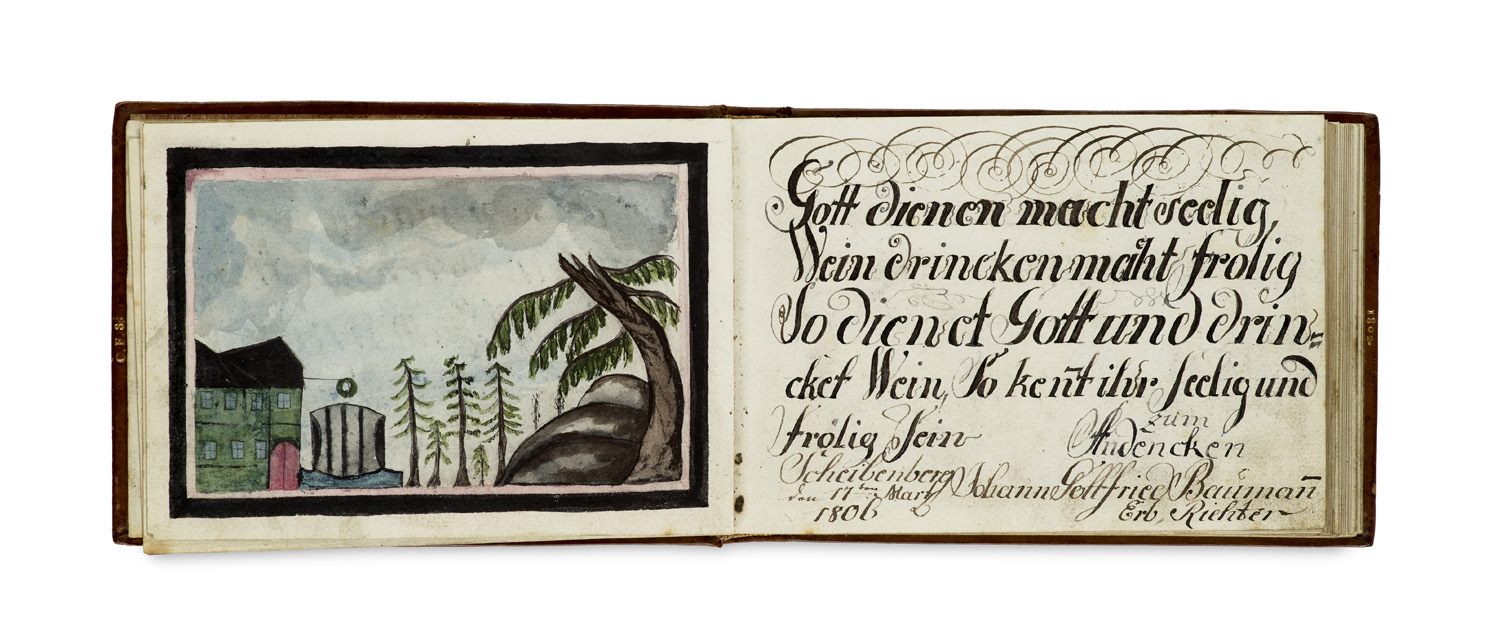 Gott dienen macht seelig,
Wein drincken macht frölig
So dienet Gott und drin=
cket Wein, So kent̄ ihr seelig und
frölig sein
zum
Andencken
Scheibenberg Johann Gottfried Baumañ
den 17ten Marz
1806 Erb, Richter
1802